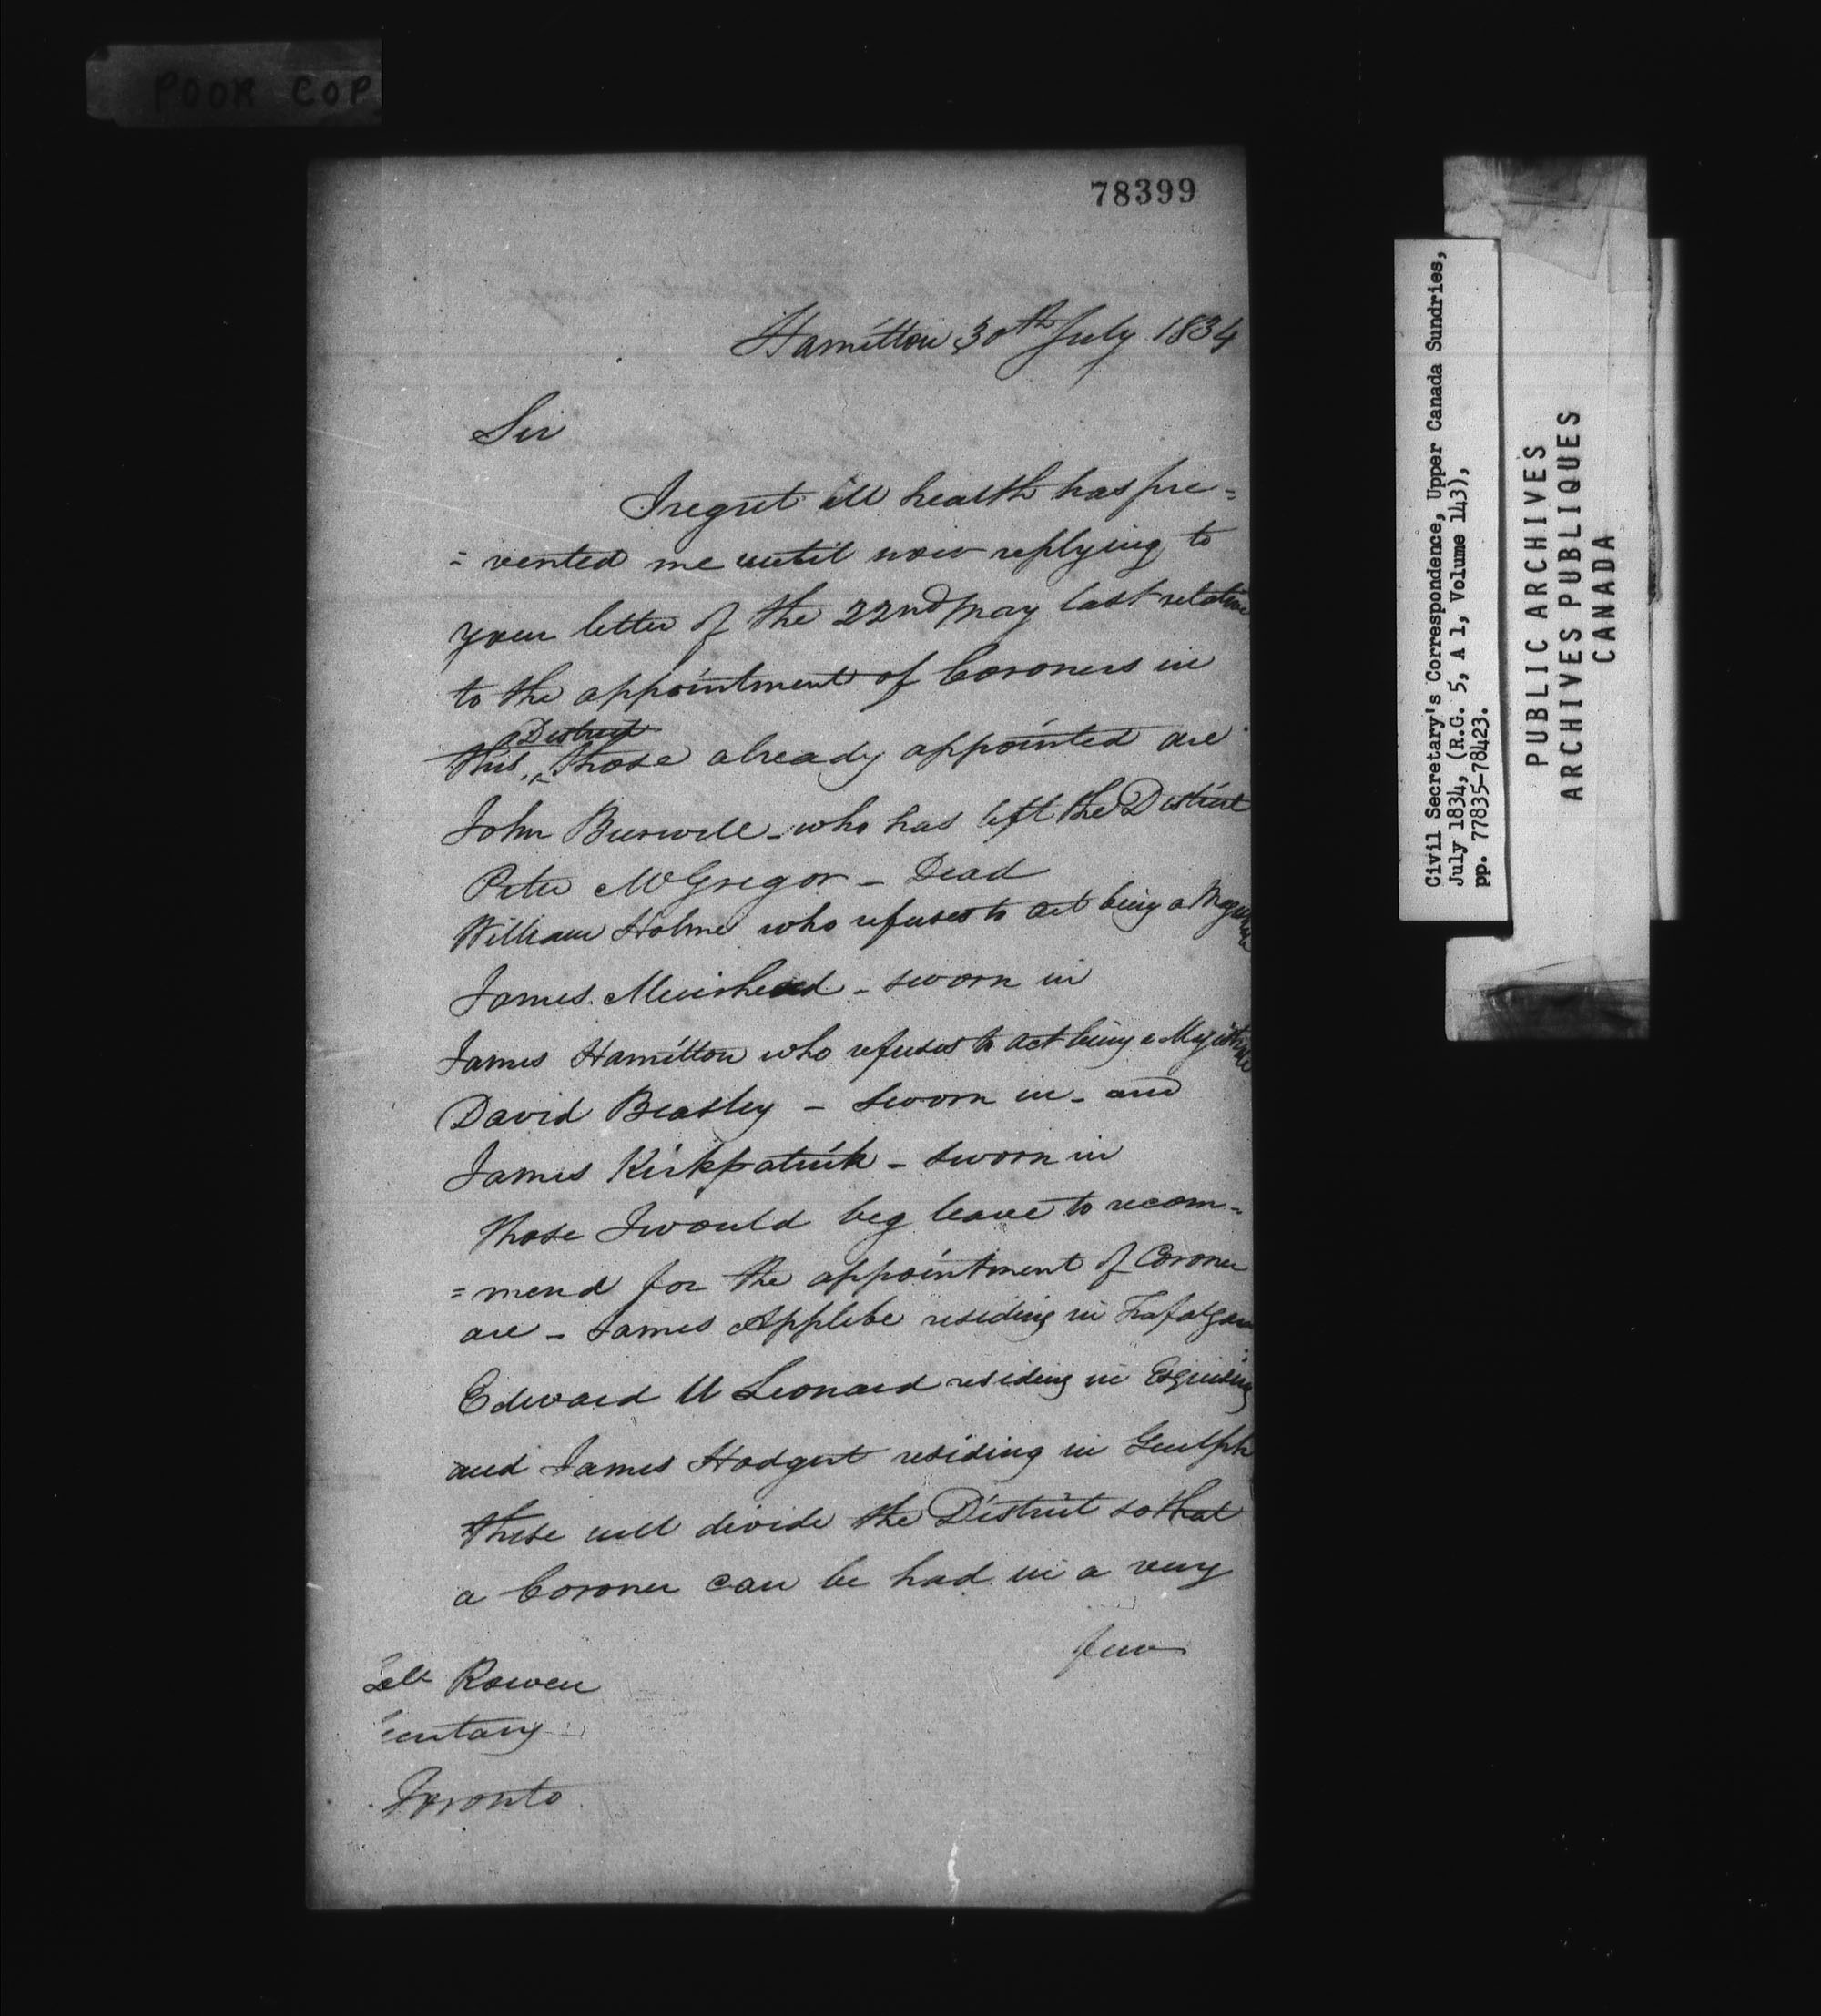 POOR COP
78399
Hamilton 30th July 1834
Sir
I regret ill health has pre=
=vented me until now replying to
your letter of the 22nd May last relative
to the appointment of Coroners in
District
this, ^ those already appointed are
John Burwell - who has left the District
Peter McGregor - Dead
William Holme who refuses to act being a Magistrate
James Muirhead - sworn in
James Hamilton who refuses to act being a Magistrate
David Beasley - sworn in - and
James Kirkpatrick - sworn in
Those I would beg leave to recom=
=mend for the appointment of Coroner
are - James Applebe residing in Trafalgar
Edward U Leonard residing in Esquesing
and James Hodgert residing in Guelph
these will divide the District so that
a Coroner can be had in a very
few
Rowen
Toronto
Civil Secretary's Correspondence, Upper Canada Sundries,
July 1834, (R.G. 5, A 1, Volume 143),
pp. 77835-78423.
PUBLIC ARCHIVES
ARCHIVES PUBLIQUES
CANADA